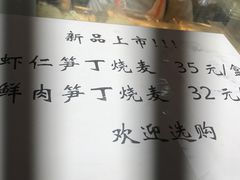 新品上市!!!
虾仁笋丁烧麦 35元/盒
鲜肉笋丁烧麦 32元/
欢迎选购